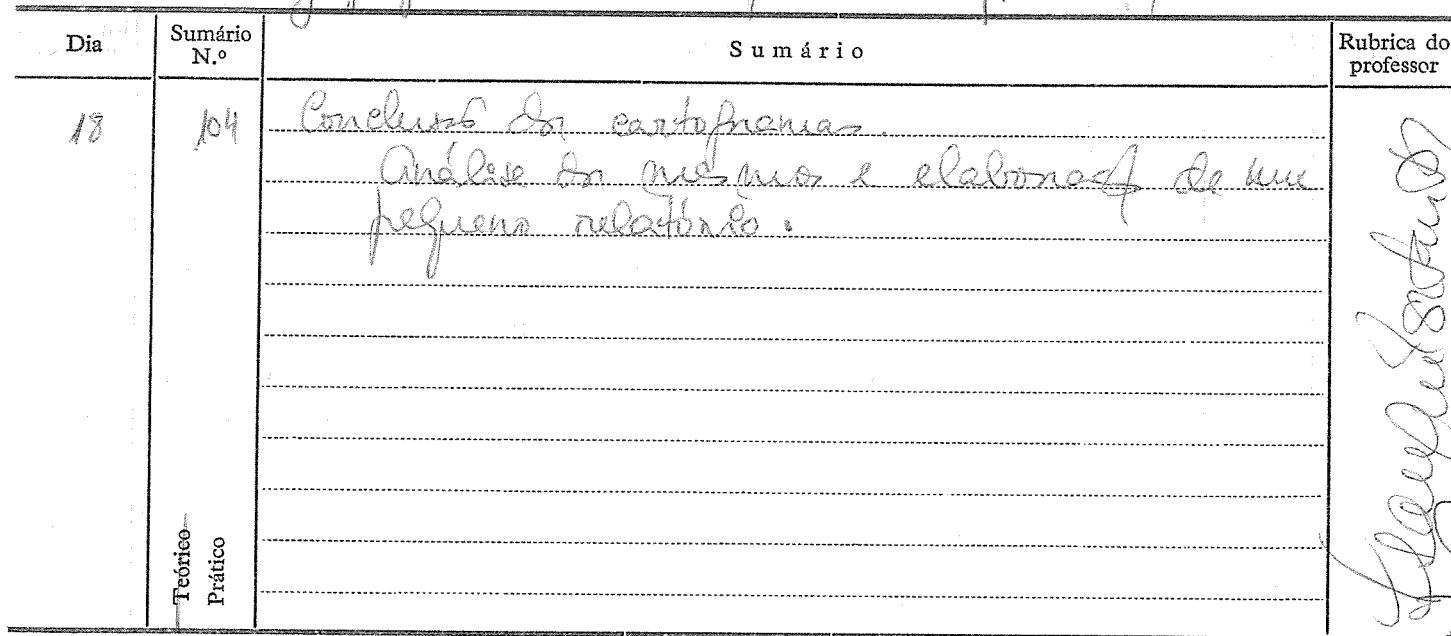 Dia
Sumário N.º
Sumário
Rubrica do professor
18
104
Conclusão dos cartogramas.
Análise dos mesmos e elaboração de um
pequeno relatório.
Teórico
Prático